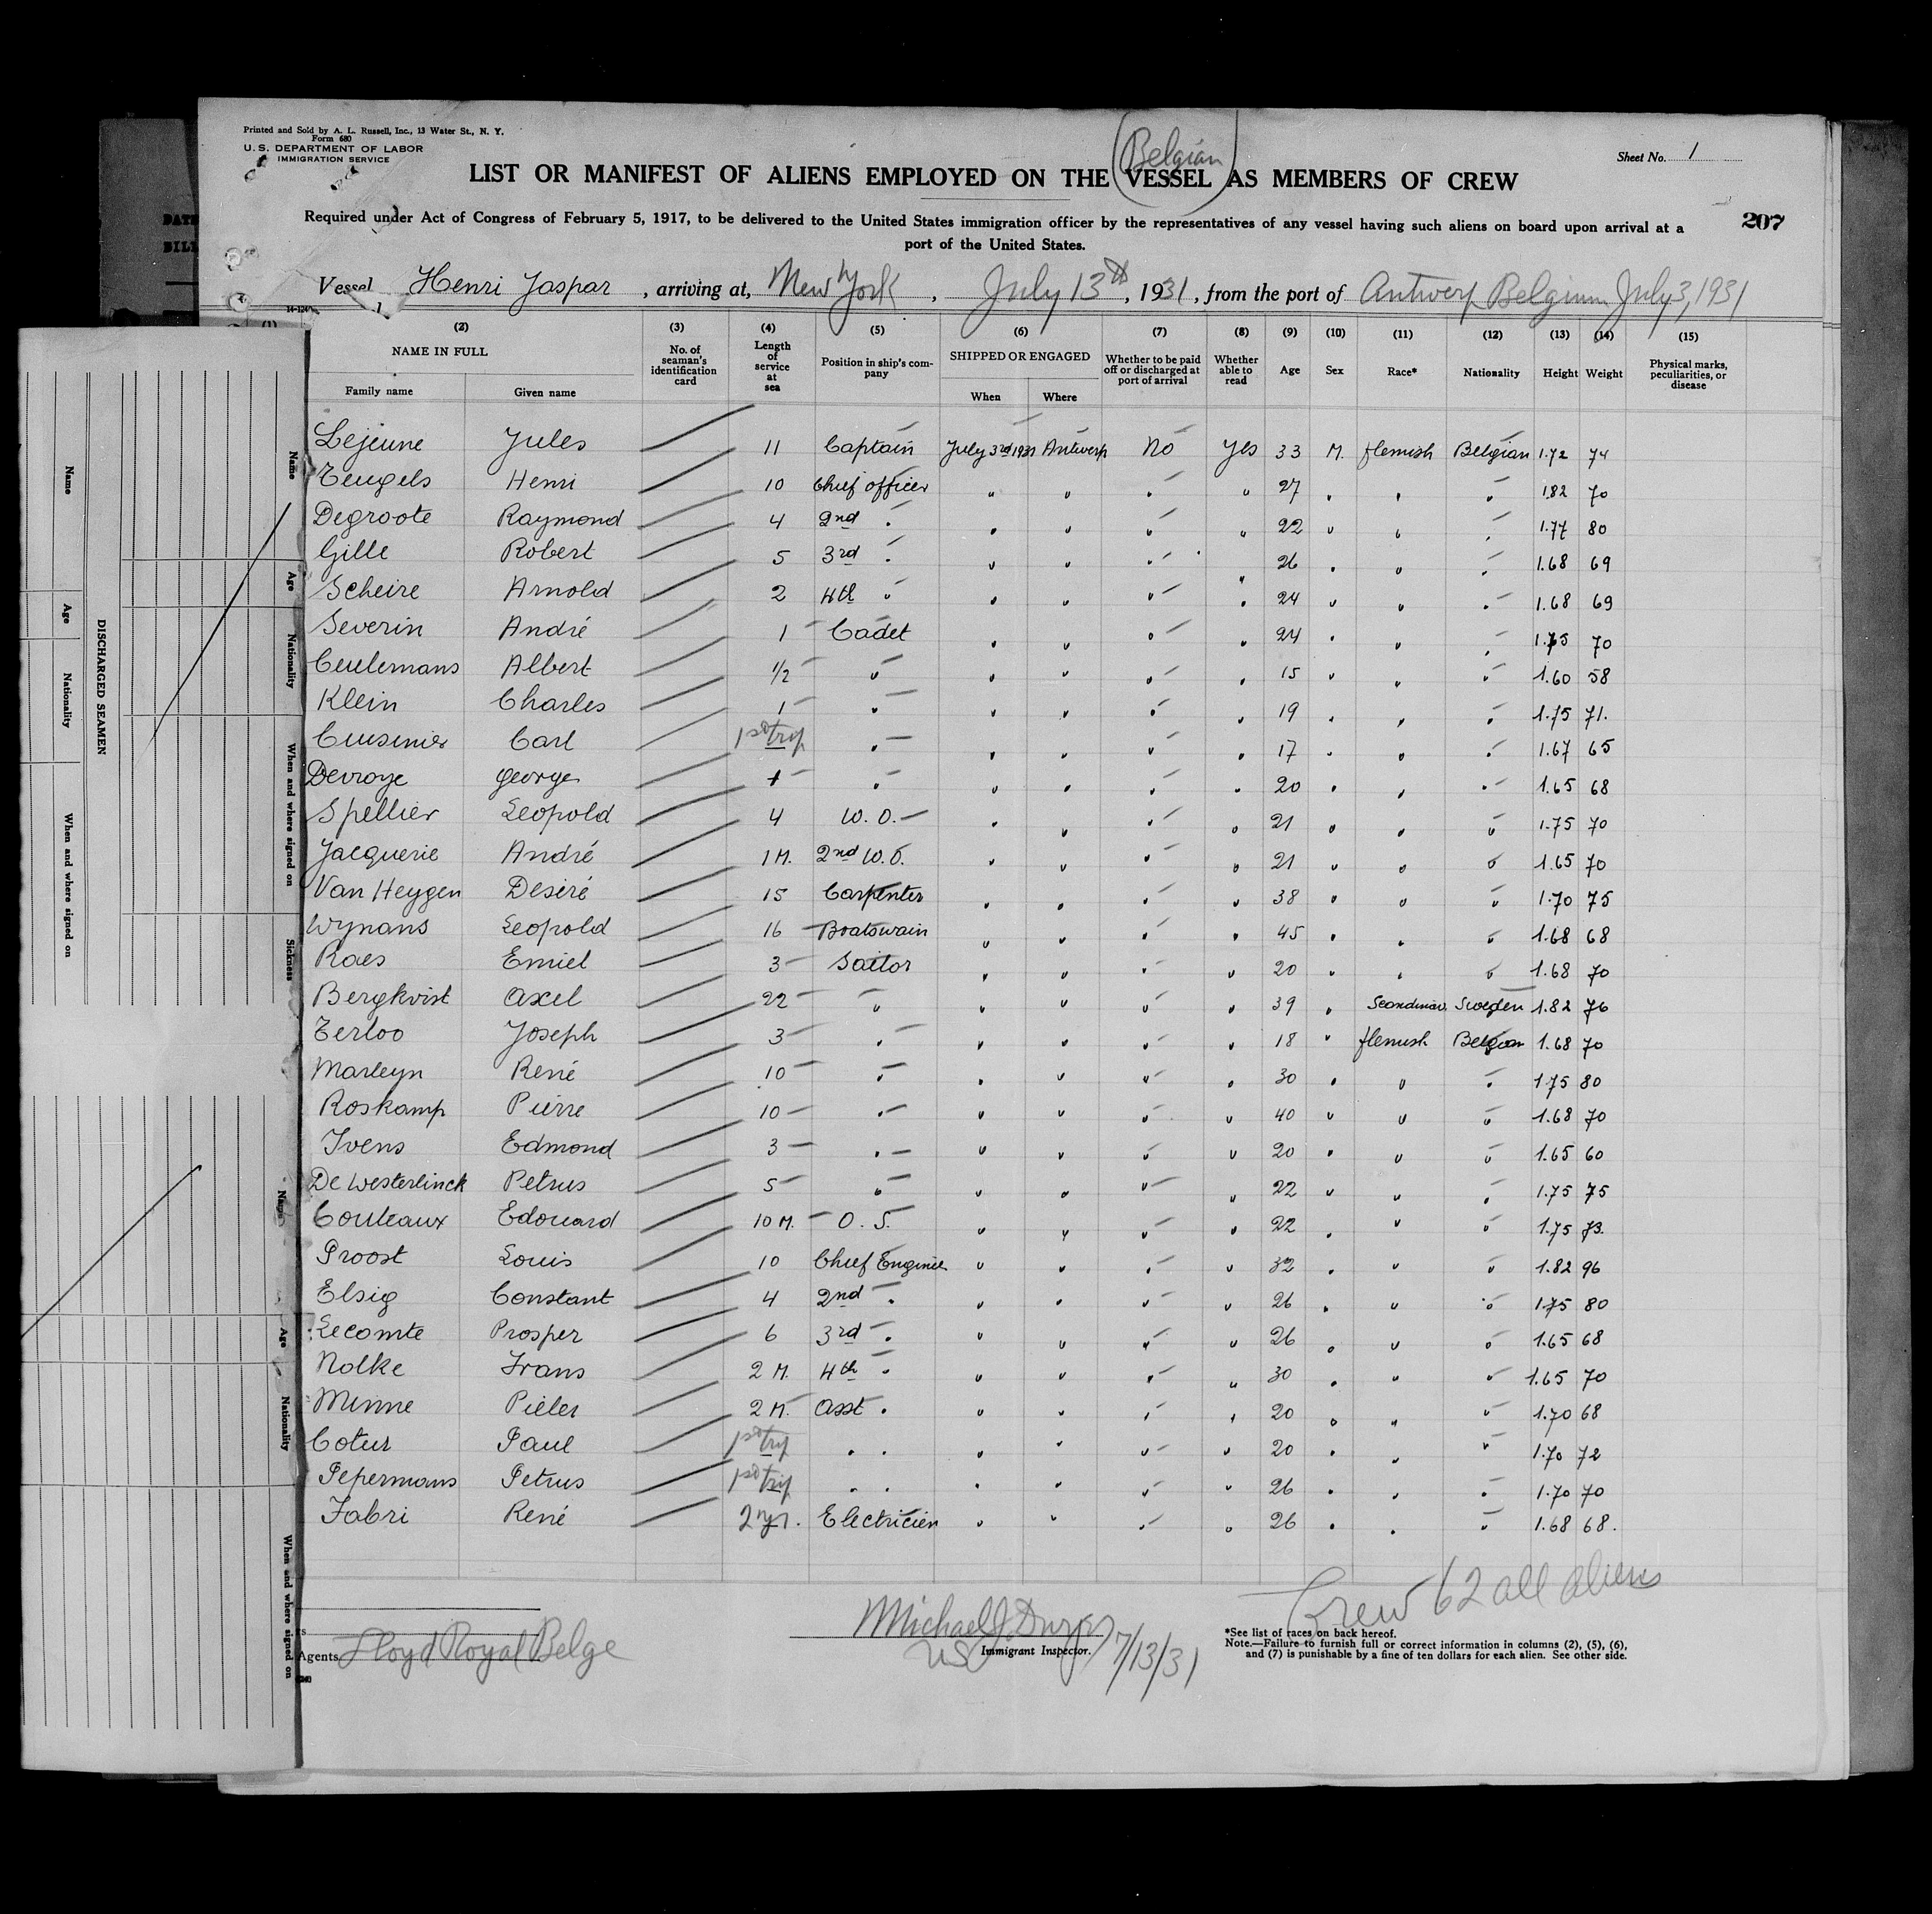 Printed and Sold by A. L. Russell, Inc., 13 Water St., N. Y.
Form 680
U. S. DEPARTMENT OF LABOR
IMMIGRATION SERVICE
Sheet No. 1
(Belgian)
LIST OR MANIFEST OF ALIENS EMPLOYED ON THE VESSEL AS MEMBERS OF CREW
207
Required under Act of Congress of February 5, 1917, to be delivered to the United States immigration officer by the representatives of any vessel having such aliens on board upon arrival at a
port of the United States.
Vessel Henri Jaspar, arriving at, New York, July 13th, 1931, from the port of Antwerp Belgium July 3, 1931
(1) (2) (3) (4) (5) (6) (7) (8) (9) (10) (11) (12) (13) (14) (15)
NAME IN FULL No. of seaman's identification card Length of service at sea Position in ship's company SHIPPED OR ENGAGED Whether to be paid off or discharged at port of arrival Whether able to read Age Sex Race* Nationality Height Weight Physical marks, peculiarities, or disease
Family name Given name When Where
Lejeune Jules 11 Captain July 3rd 1931 Antwerp No Yes 33 M. flemish Belgian 1.72 74
Teugels Henri 10 Chief officer " " " " 27 " " " 1.82 70
Degroote Raymond 4 2nd " " " " " 22 " " " 1.77 80
Gille Robert 5 3rd " " " " " 26 " " " 1.68 69
Scheire Arnold 2 4th " " " " " 24 " " " 1.68 69
Severin André 1 Cadet " " " " 24 " " " 1.75 70
Ceulemans Albert 1/2 " " " " " 15 " " " 1.60 58
Klein Charles 1 " " " " " 19 " " " 1.75 71.
Cuisinier Carl 1st trip " " " " " 17 " " " 1.67 65
Devroye George 1 " " " " " 20 " " " 1.65 68
Spellier Leopold 4 W. O. " " " " 21 " " " 1.75 70
Jacquerie André 1 M. 2nd W. O. " " " " 21 " " " 1.65 70
Van Heygen Desiré 15 Carpenter " " " " 38 " " " 1.70 75
Wynans Leopold 16 Boatswain " " " " 45 " " " 1.68 68
Raes Emiel 3 Sailor " " " " 20 " " " 1.68 70
Bergkvist Axel 22 " " " " " 39 " Scandinav. Sweden 1.82 76
Terloo Joseph 3 " " " " " 18 " flemish Belgian 1.68 70
Marleyn René 10 " " " " " 30 " " " 1.75 80
Roskamp Pierre 10 " " " " " 40 " " " 1.68 70
Ivens Edmond 3 " " " " " 20 " " " 1.65 60
De Westerlinck Petrus 5 " " " " " 22 " " " 1.75 75
Couteaux Edouard 10 M. O. S. " " " " 22 " " " 1.75 73.
Proost Louis 10 Chief Engineer " " " " 32 " " " 1.82 96
Elsig Constant 4 2nd " " " " " 26 " " " 1.75 80
Lecomte Prosper 6 3rd " " " " " 26 " " " 1.65 68
Nolke Frans 2 M. 4th " " " " " 30 " " " 1.65 70
Minne Pieter 2 M. Asst " " " " " 20 " " " 1.70 68
Cotur Paul 1st trip " " " " " " 20 " " " 1.70 72
Pepermans Petrus 1st trip " " " " " " 26 " " " 1.70 70
Fabri René 2 yr. Electricien " " " " 26 " " " 1.68 68.
Crew 62 all aliens
Agents Lloyd Royal Belge
Michael J.
US Immigrant Inspector. 7/13/31
*See list of races on back hereof.
Note.—Failure to furnish full or correct information in columns (2), (5), (6),
and (7) is punishable by a fine of ten dollars for each alien. See other side.
DISCHARGED SEAMEN
Name Age Nationality When and where signed on
Name Age Nationality When and where signed on Sickness
Name Age Nationality When and where signed on